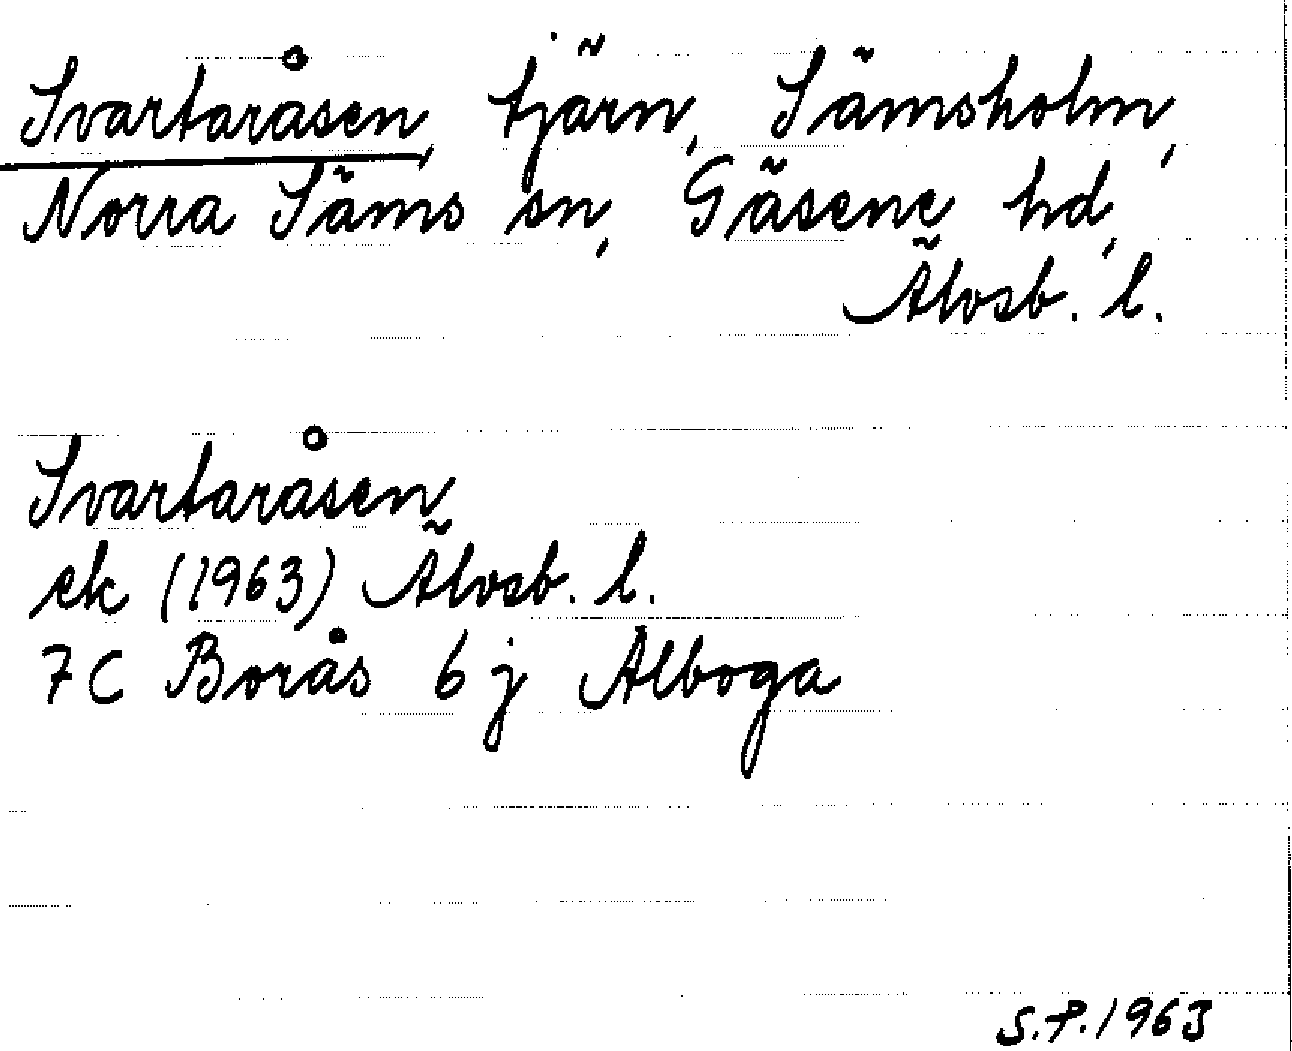 Svartaråsen, tjärn, Sämsholm,
Norra Säms sn, Gäsene hd,
Älvsb. l.
Svartaråsen
ek (1963) Älvsb. l.
7C Borås 6 j Alboga
S.P. 1963